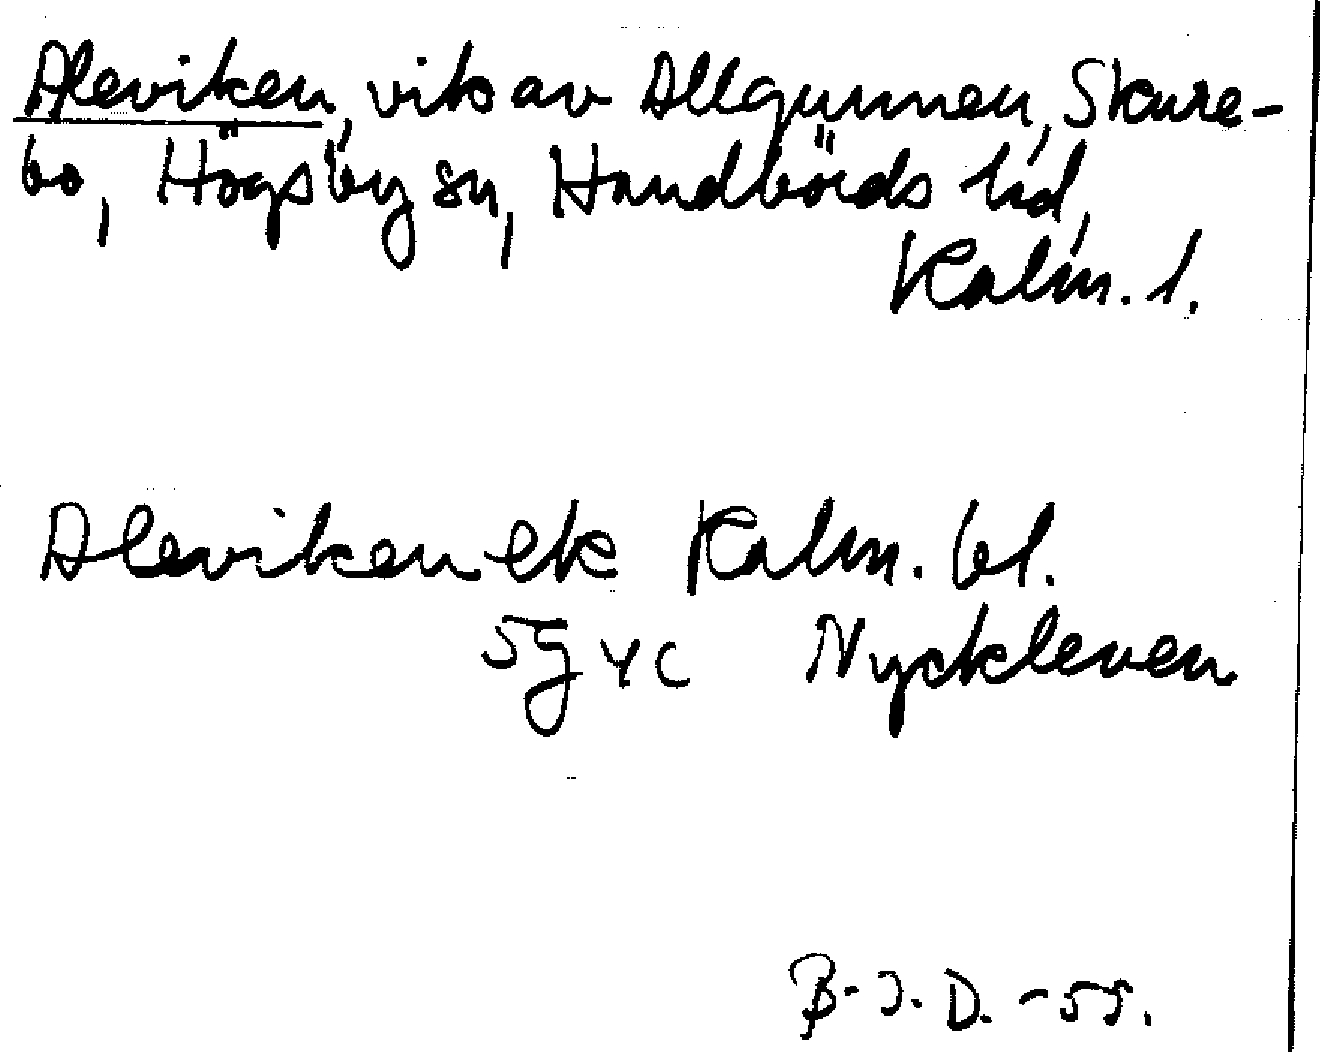 Aleviken, vik av Allgunnen, Skure-
bo, Högsby sn, Handbörds hd,
Kalm. l.
Aleviken ek Kalm. bl.
5g yc Nyckleven
B-J. D. -55.